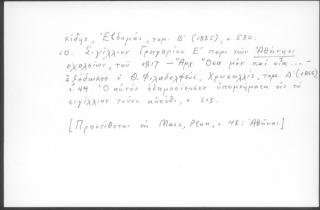 κίδης, Ἑβδομάς, τομ. Β' (1885), σ. 530.
10. Σιγίλλιον Γρηγορίου Ε' περὶ τῶν Ἀθήνησι
σχολείων, τοῦ 1817 — Ἀρχ. "Ὅσα μὲν καὶ
ἐξέδωκεν ὁ Θ. Φιλαδελφεύς, Χρυσαλλίς, τομ. Δ' (1866)
σ. 44. Ὁ αὐτὸς ἐδημοσίευσεν ὑπομνήματα εἰς τὸ
σιγίλλιον τοῦτο αὐτόθι, σ. 205.
[Προστίθεται ἐκ σ. 48: Ἀθῆναι]